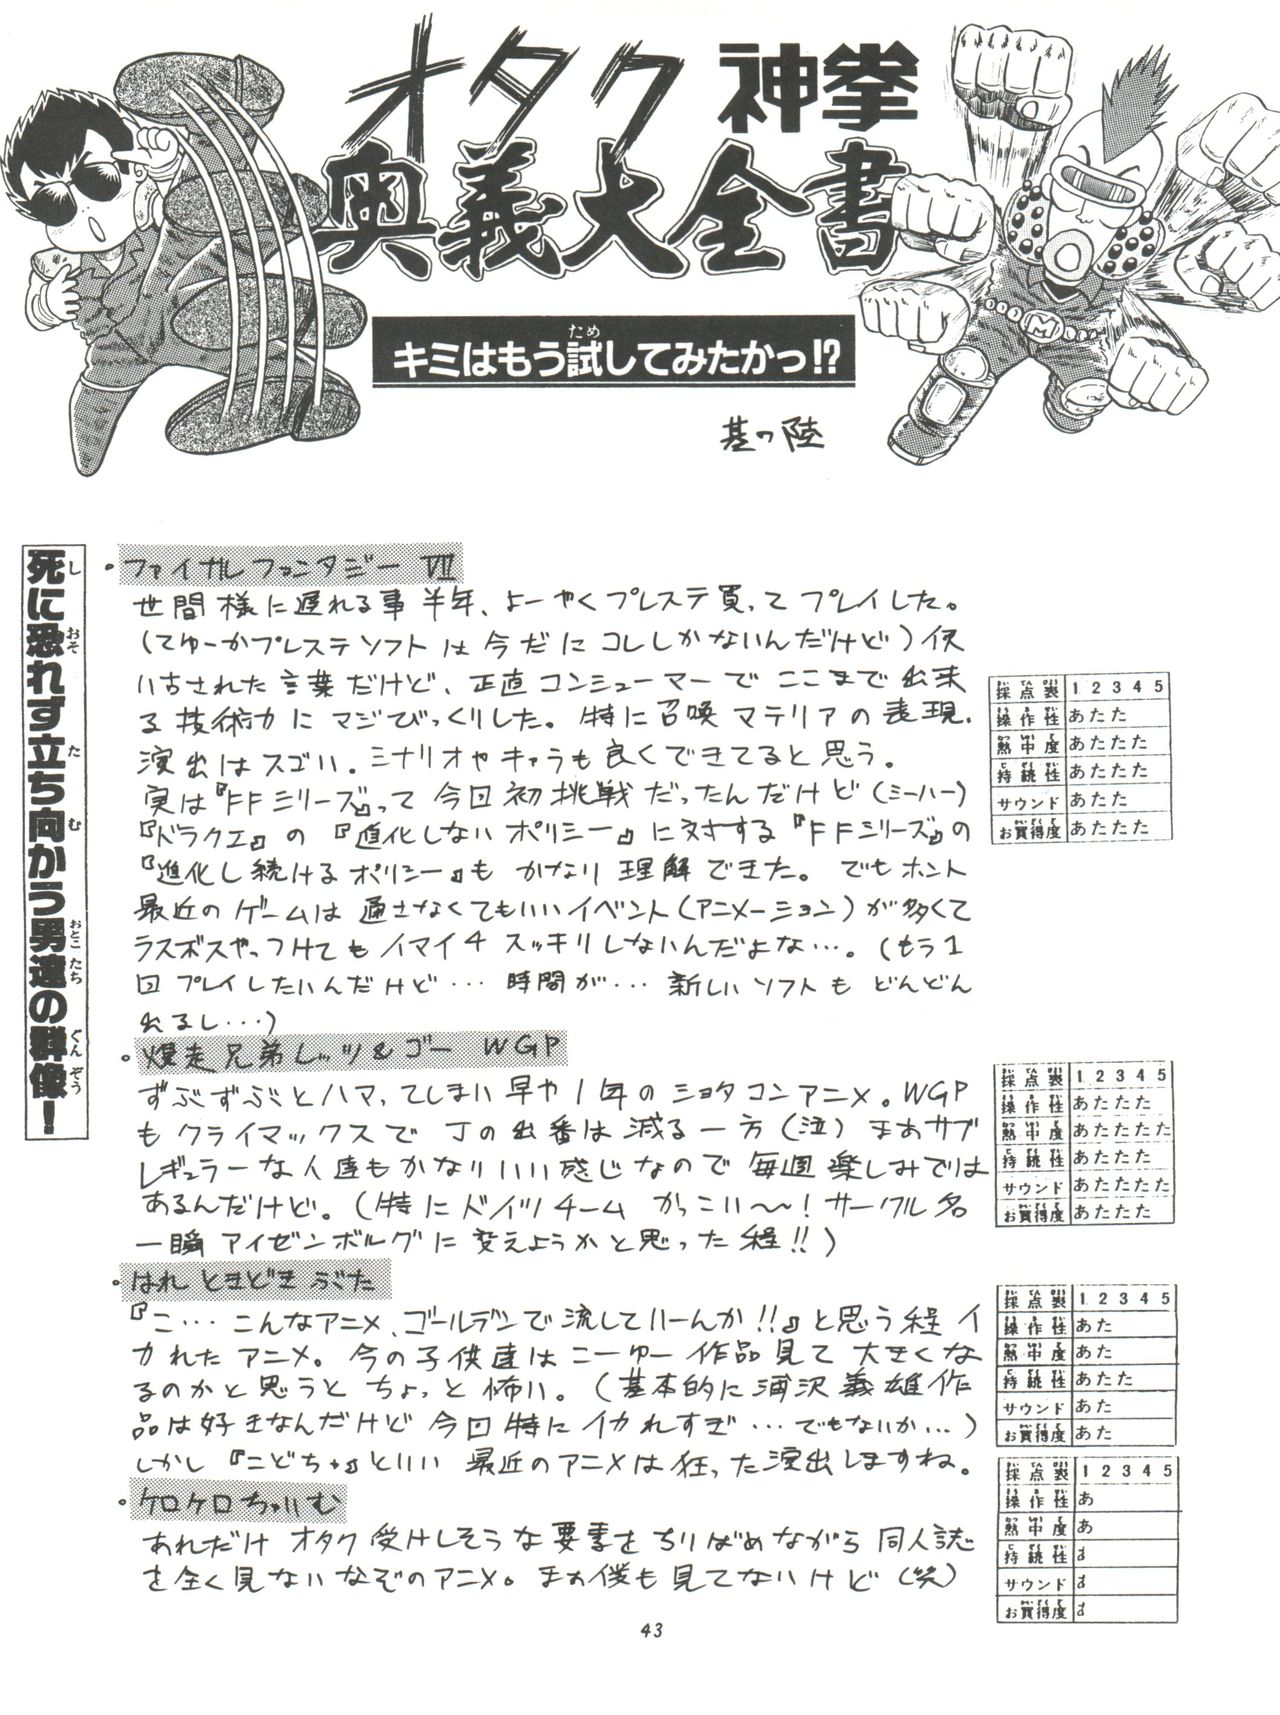 オタク 神拳
奥義大全書
キミはもう試してみたかっ!?
ため
其の陸
死に恐れず立ち向かう男達の群像!
し おそ た む おとこ たち ぐん ぞう
・ファイナルファンタジー VII
世間様に遅れる事半年、よーやくプレステ買ってプレイした。
(てゆーかプレステソフトは今だにコレしかないんだけど)使
い古された言葉だけど、正直コンシューマーでここまで出来
る技術力にマジびっくりした。特に召喚マテリアの表現、
演出はスゴい。シナリオやキャラも良くできてると思う。
実は『FFシリーズ』って今回初挑戦だったんだけど(ミーハー)
『ドラクエ』の『進化しないポリシー』に対する『FFシリーズ』の
『進化し続けるポリシー』もかなり理解できた。でもホント
最近のゲームは通さなくてもいいイベント(アニメーション)が多くて
ラスボスやっつけてもイマイチスッキリしないんだよな…。(もう1
回プレイしたいんだけど…時間が…新しいソフトもどんどん
出るし…)
採点表 1 2 3 4 5
操作性 あたた
熱中度 あたたた
持続性 あたたた
サウンド あたた
お買得度 あたたた
・爆走兄弟レッツ&ゴー WGP
ずぶずぶとハマってしまい早や1年のショタコンアニメ。WGP
もクライマックスでJの出番は減る一方(泣)まあサブ
レギュラーな人達もかなりいい感じなので毎週楽しみでは
あるんだけど。(特にドイツチームかっこい〜!サークル名
一瞬アイゼンボルグに変えようかと思った程!!)
採点表 1 2 3 4 5
操作性 あたたた
熱中度 あたたたた
持続性 あたたた
サウンド あたたたた
お買得度 あたたた
・はれときどきぶた
『こ…こんなアニメ、ゴールデンで流していーんか!!』と思う程イ
カれたアニメ。今の子供達はこーゆー作品見て大きくな
るのかと思うとちょっと怖い。(基本的に浦沢義雄作
品は好きなんだけど今回特にイカれすぎ…でもないか…)
しかし『こどちゃ』といい最近のアニメは狂った演出しますね。
採点表 1 2 3 4 5
操作性 あた
熱中度 あた
持続性 あたた
サウンド あた
お買得度 あた
・ケロケロちゃいむ
あれだけオタク受けしそうな要素をちりばめながら同人誌
を全く見ないなぞのアニメ。まあ僕も見てないけど(笑)
採点表 1 2 3 4 5
操作性 あ
熱中度 あ
持続性
サウンド
お買得度
M
43